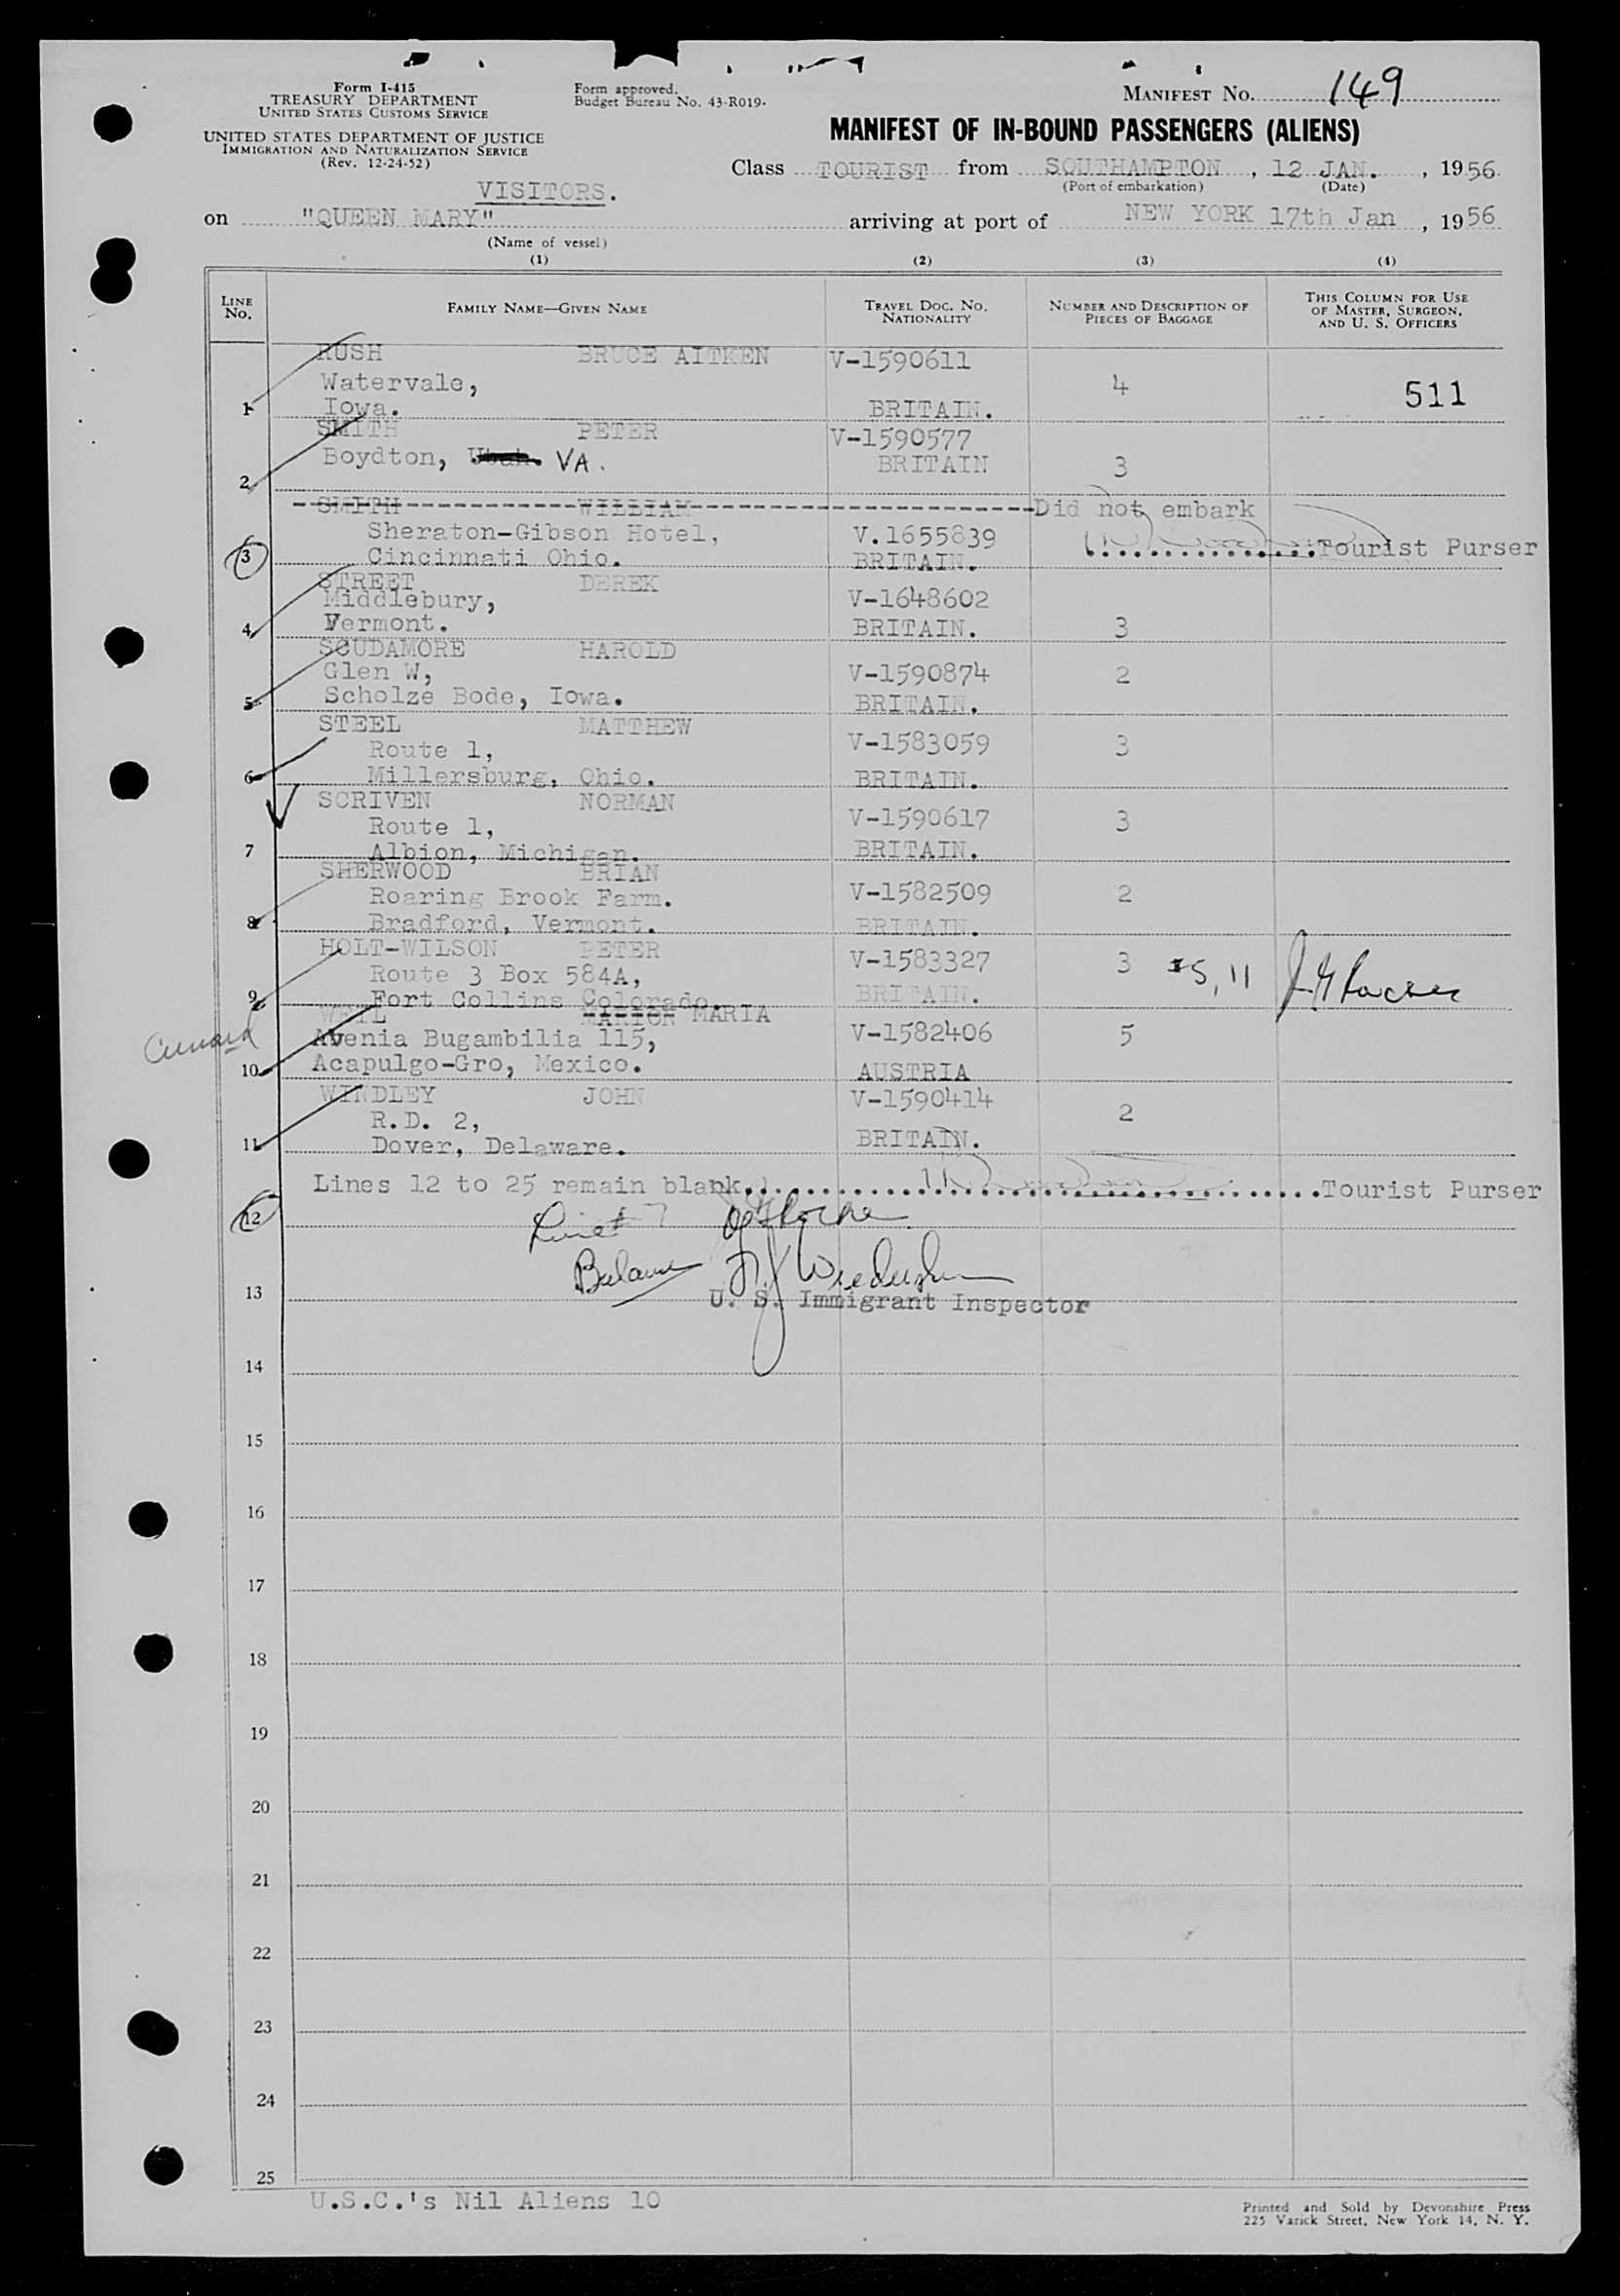 Form I-415
TREASURY DEPARTMENT
UNITED STATES CUSTOMS SERVICE
UNITED STATES DEPARTMENT OF JUSTICE
IMMIGRATION AND NATURALIZATION SERVICE
(Rev. 12-24-52)
Form approved.
Budget Bureau No. 43-R019.
MANIFEST NO. 149
MANIFEST OF IN-BOUND PASSENGERS (ALIENS)
Class TOURIST from SOUTHAMPTON, 12 JAN., 1956
(Port of embarkation) (Date)
VISITORS.
on "QUEEN MARY" arriving at port of NEW YORK 17th Jan, 1956
(Name of vessel)
(1) (2) (3) (4)
LINE NO. FAMILY NAME—GIVEN NAME TRAVEL DOC. NO. NATIONALITY NUMBER AND DESCRIPTION OF PIECES OF BAGGAGE THIS COLUMN FOR USE OF MASTER, SURGEON, AND U. S. OFFICERS
RUSH BRUCE AITKEN V-1590611
Watervale, 4 511
1 Iowa. BRITAIN.
SMITH PETER V-1590577
Boydton, Utah. VA. BRITAIN 3
2
SMITH WILLIAM Did not embark
Sheraton-Gibson Hotel, V.1655839 Tourist Purser
3 Cincinnati Ohio. BRITAIN.
STREET DEREK
Middlebury, V-1648602
4 Vermont. BRITAIN. 3
SCUDAMORE HAROLD
Glen W, V-1590874 2
5 Scholze Bode, Iowa. BRITAIN.
STEEL MATTHEW
Route 1, V-1583059 3
6 Millersburg, Ohio. BRITAIN.
SCRIVEN NORMAN
Route 1, V-1590617 3
7 Albion, Michigan. BRITAIN.
SHERWOOD BRIAN
Roaring Brook Farm. V-1582509 2
8 Bradford, Vermont. BRITAIN.
HOLT-WILSON PETER
Route 3 Box 584A, V-1583327 3
9 Fort Collins Colorado. BRITAIN.
WEIL MARION MARIA
Cunard
Avenia Bugambilia 115, V-1582406 5
10 Acapulgo-Gro, Mexico. AUSTRIA
WINDLEY JOHN V-1590414
R.D. 2, 2
11 Dover, Delaware. BRITAIN.
Lines 12 to 25 remain blank. Tourist Purser
12
Balance
13 U. S. Immigrant Inspector
14
15
16
17
18
19
20
21
22
23
24
25
U.S.C.'s Nil Aliens 10
Printed and Sold by Devonshire Press
225 Varick Street, New York 14, N. Y.